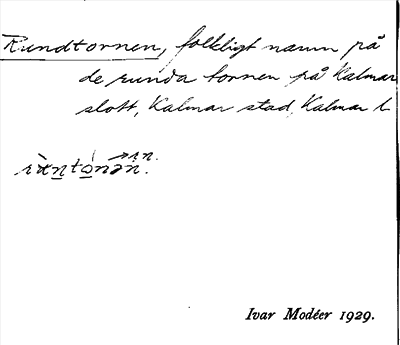 Rundtornen, folkligt namn på
de runda tornen på Kalmar
slott, Kalmar stad, Kalmar l
Ivar Modéer 1929.